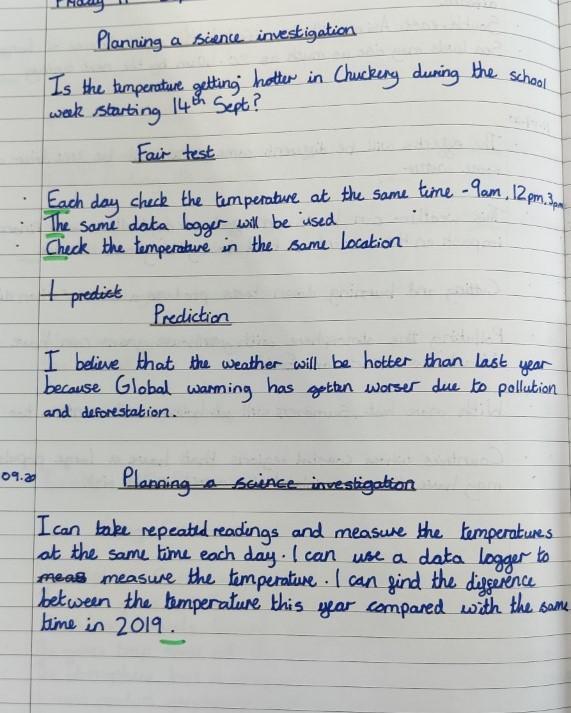 Friday 11
Planning a science investigation
Is the temperature getting hotter in Chuckery during the school
week starting 14th Sept?
Fair test
Each day check the temperature at the same time - 9am, 12pm, 3pm
The same data logger will be used
Check the temperature in the same location
I predict
Prediction
I believe that the weather will be hotter than last year
because Global warming has gotten worser due to pollution
and deforestation.
09.20
Planning a science investigation
I can take repeated readings and measure the temperatures
at the same time each day. I can use a data logger to
meas measure the temperature. I can find the difference
between the temperature this year compared with the same
time in 2019.